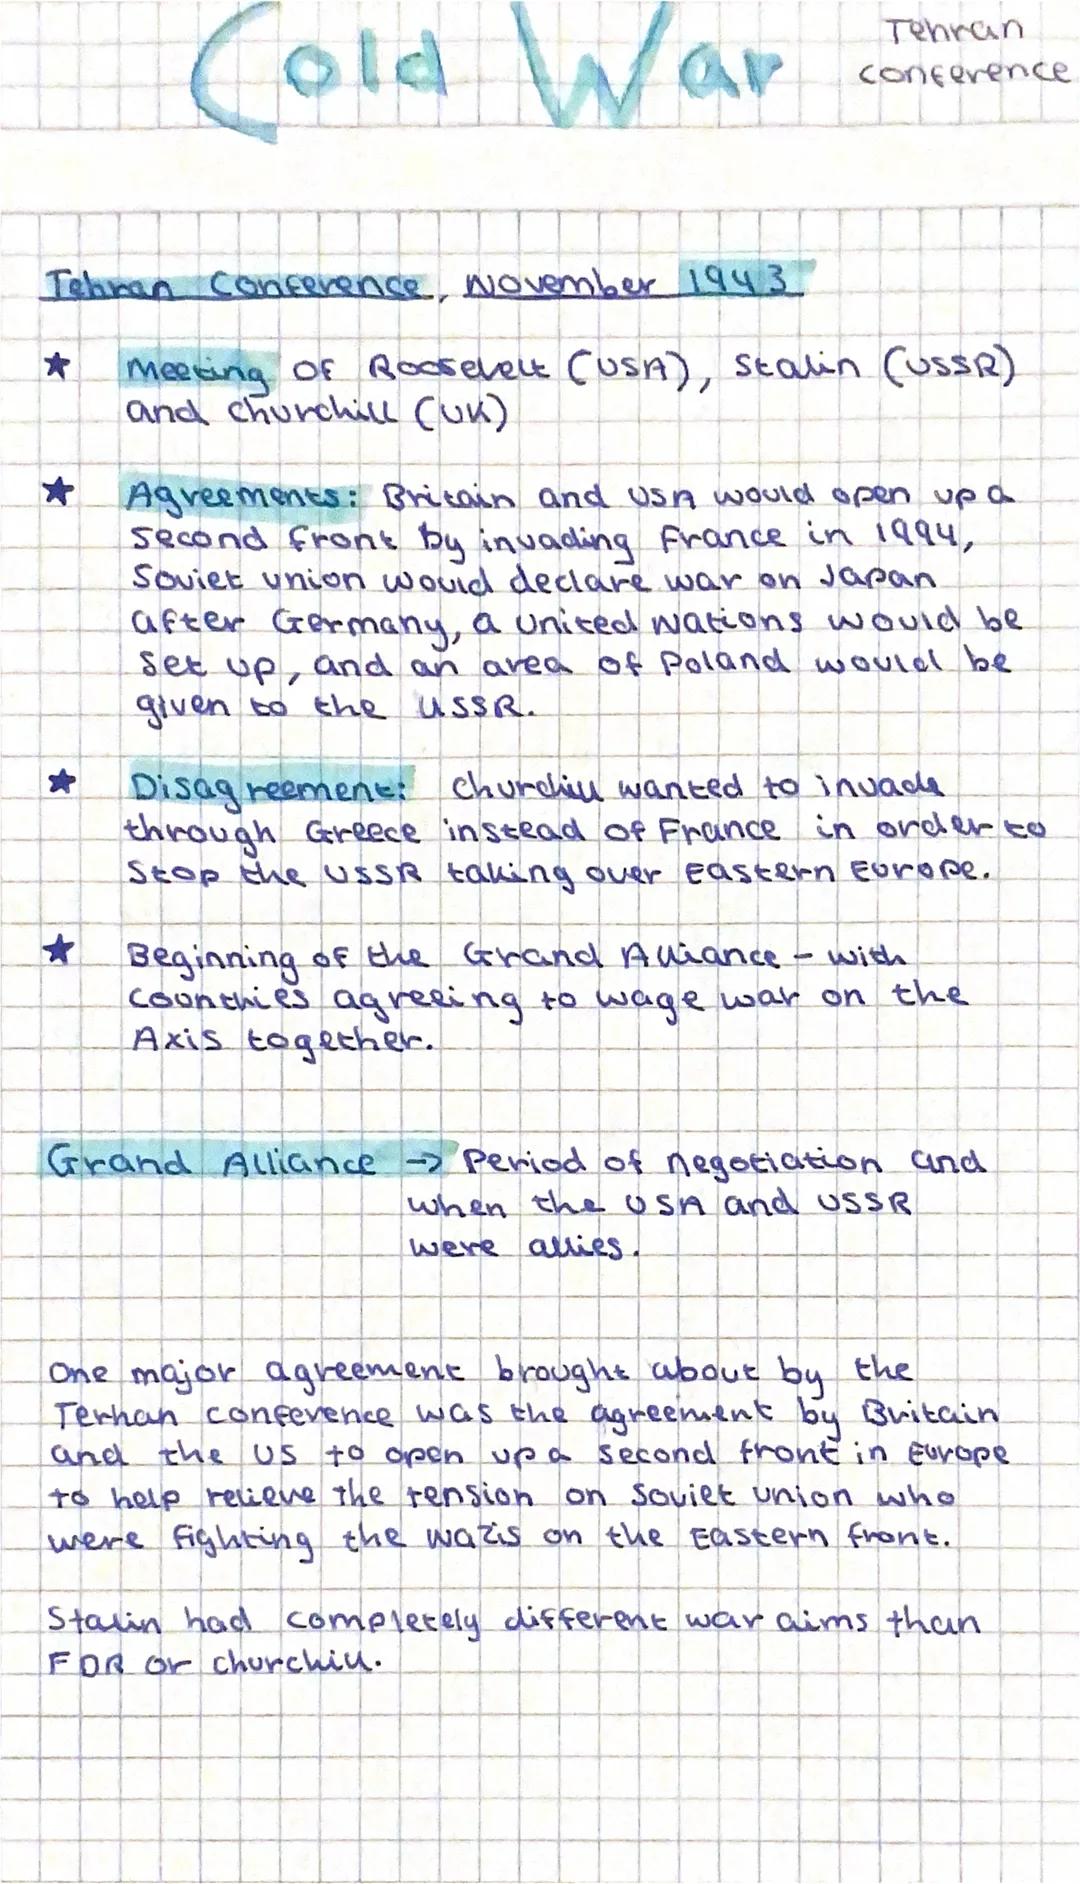 Cold War
Tehran
conference
Tehran Conference, November 1943
★ Meeting of Roosevelt (USA), Stalin (USSR)
and Churchill (UK)
★ Agreements: Britain and USA would open up a
second front by invading France in 1994,
Soviet union would declare war on Japan
after Germany, a United Nations would be
set up, and an area of Poland would be
given to the USSR.
★ Disagreement: Churchill wanted to invade
through Greece instead of France in order to
stop the USSR taking over Eastern Europe.
★ Beginning of the Grand Alliance - with
countries agreeing to wage war on the
Axis together.
Grand Alliance → Period of negotiation and
when the USA and USSR
were allies.
One major agreement brought about by the
Terhan conference was the agreement by Britain
and the US to open up a second front in Europe
to help relieve the tension on Soviet union who
were fighting the Nazis on the Eastern front.
Stalin had completely different war aims than
FDR or Churchill.